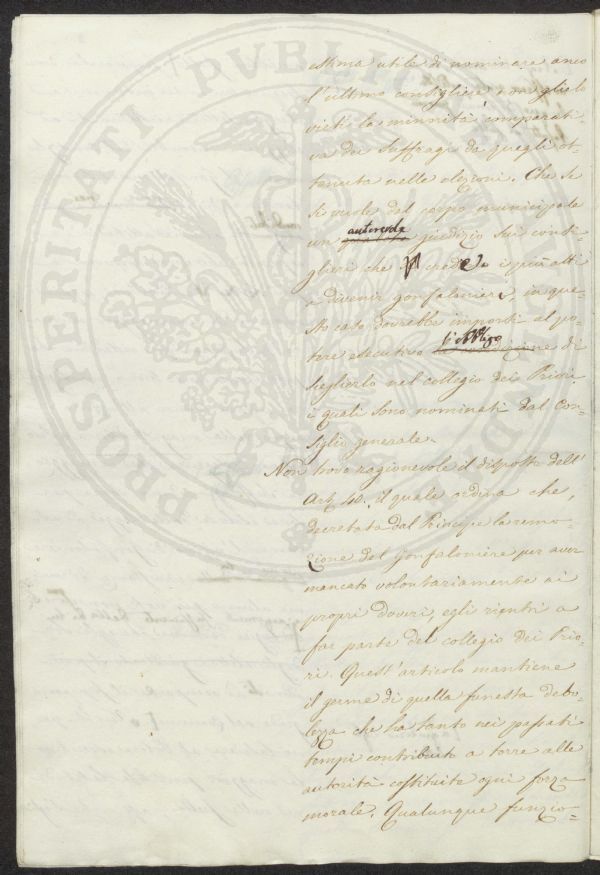 estima utile di nominare anco
l'ultimo consigliere non glielo
vieti la minorità comparati-
va dei suffragi da quegli ot-
tenuta nelle elezioni. Che se
si vuole del corpo municipale
un autorevole giudizio sui consi-
glieri che crede i più atti
a divenir gonfaloniere, in que-
sto caso dovrebbe imporsi al po-
tere esecutivo l'obbligo di
sceglierlo nel collegio dei Priori
i quali sono nominati dal Con-
siglio generale.
Non trovo ragionevole il disposto dell'
Art. 40. il quale ordina che,
decretata dal Principe la remo-
zione del Gonfaloniere per aver
mancato volontariamente ai
propri doveri, egli rientri a
far parte del collegio dei Prio-
ri. Quest'articolo mantiene
il germe di quella funesta debo-
lezza che ha tanto nei passati
tempi contribuito a torre alle
autorità costituite ogni forza
morale. Qualunque funzio-
PROSPERITATI PUBLICAE